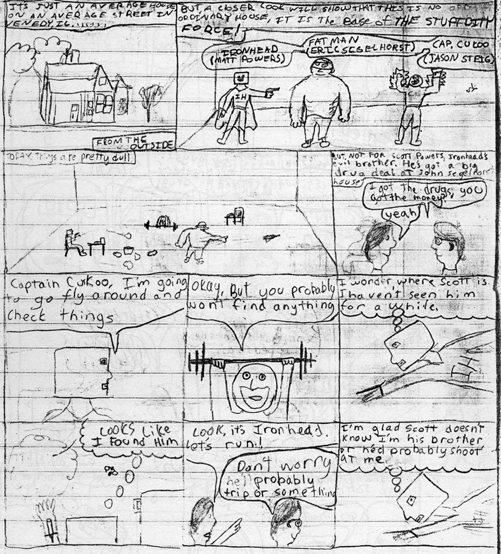 IT'S JUST AN AVERAGE HOUSE
ON AN AVERAGE STREET IN
VENEDY, IL.......
FROM THE
OUTSIDE
BUT A CLOSER LOOK WILL SHOW THAT THIS IS NO
ORDINARY HOUSE, IT IS THE Base OF THE STUPIDITY
FORCE!
IRONHEAD
(MATT POWERS)
FATMAN
(ERIC SEGELHORST)
CAP. CUKOO
(JASON STEIG)
IH
TODAY, things are pretty dull.
BUT, NOT FOR Scott Powers, Ironhead's
brother. He's got a big
drug deal at John Segelhorst
house
I got the drugs, you
got the money
yeah
Captain Cukoo, I'm going
to go fly around and
check things
Okay, But you probably
wont find anything
I wonder, where Scott is.
I haven't seen him
for a while.
LOOKS Like
I FOUND HIM
Look, its Ironhead.
Let's run!
Don't worry
he'll probably
trip or something
I'm glad Scott doesn't
know I'm his brother
or he'd probably shoot
at me.